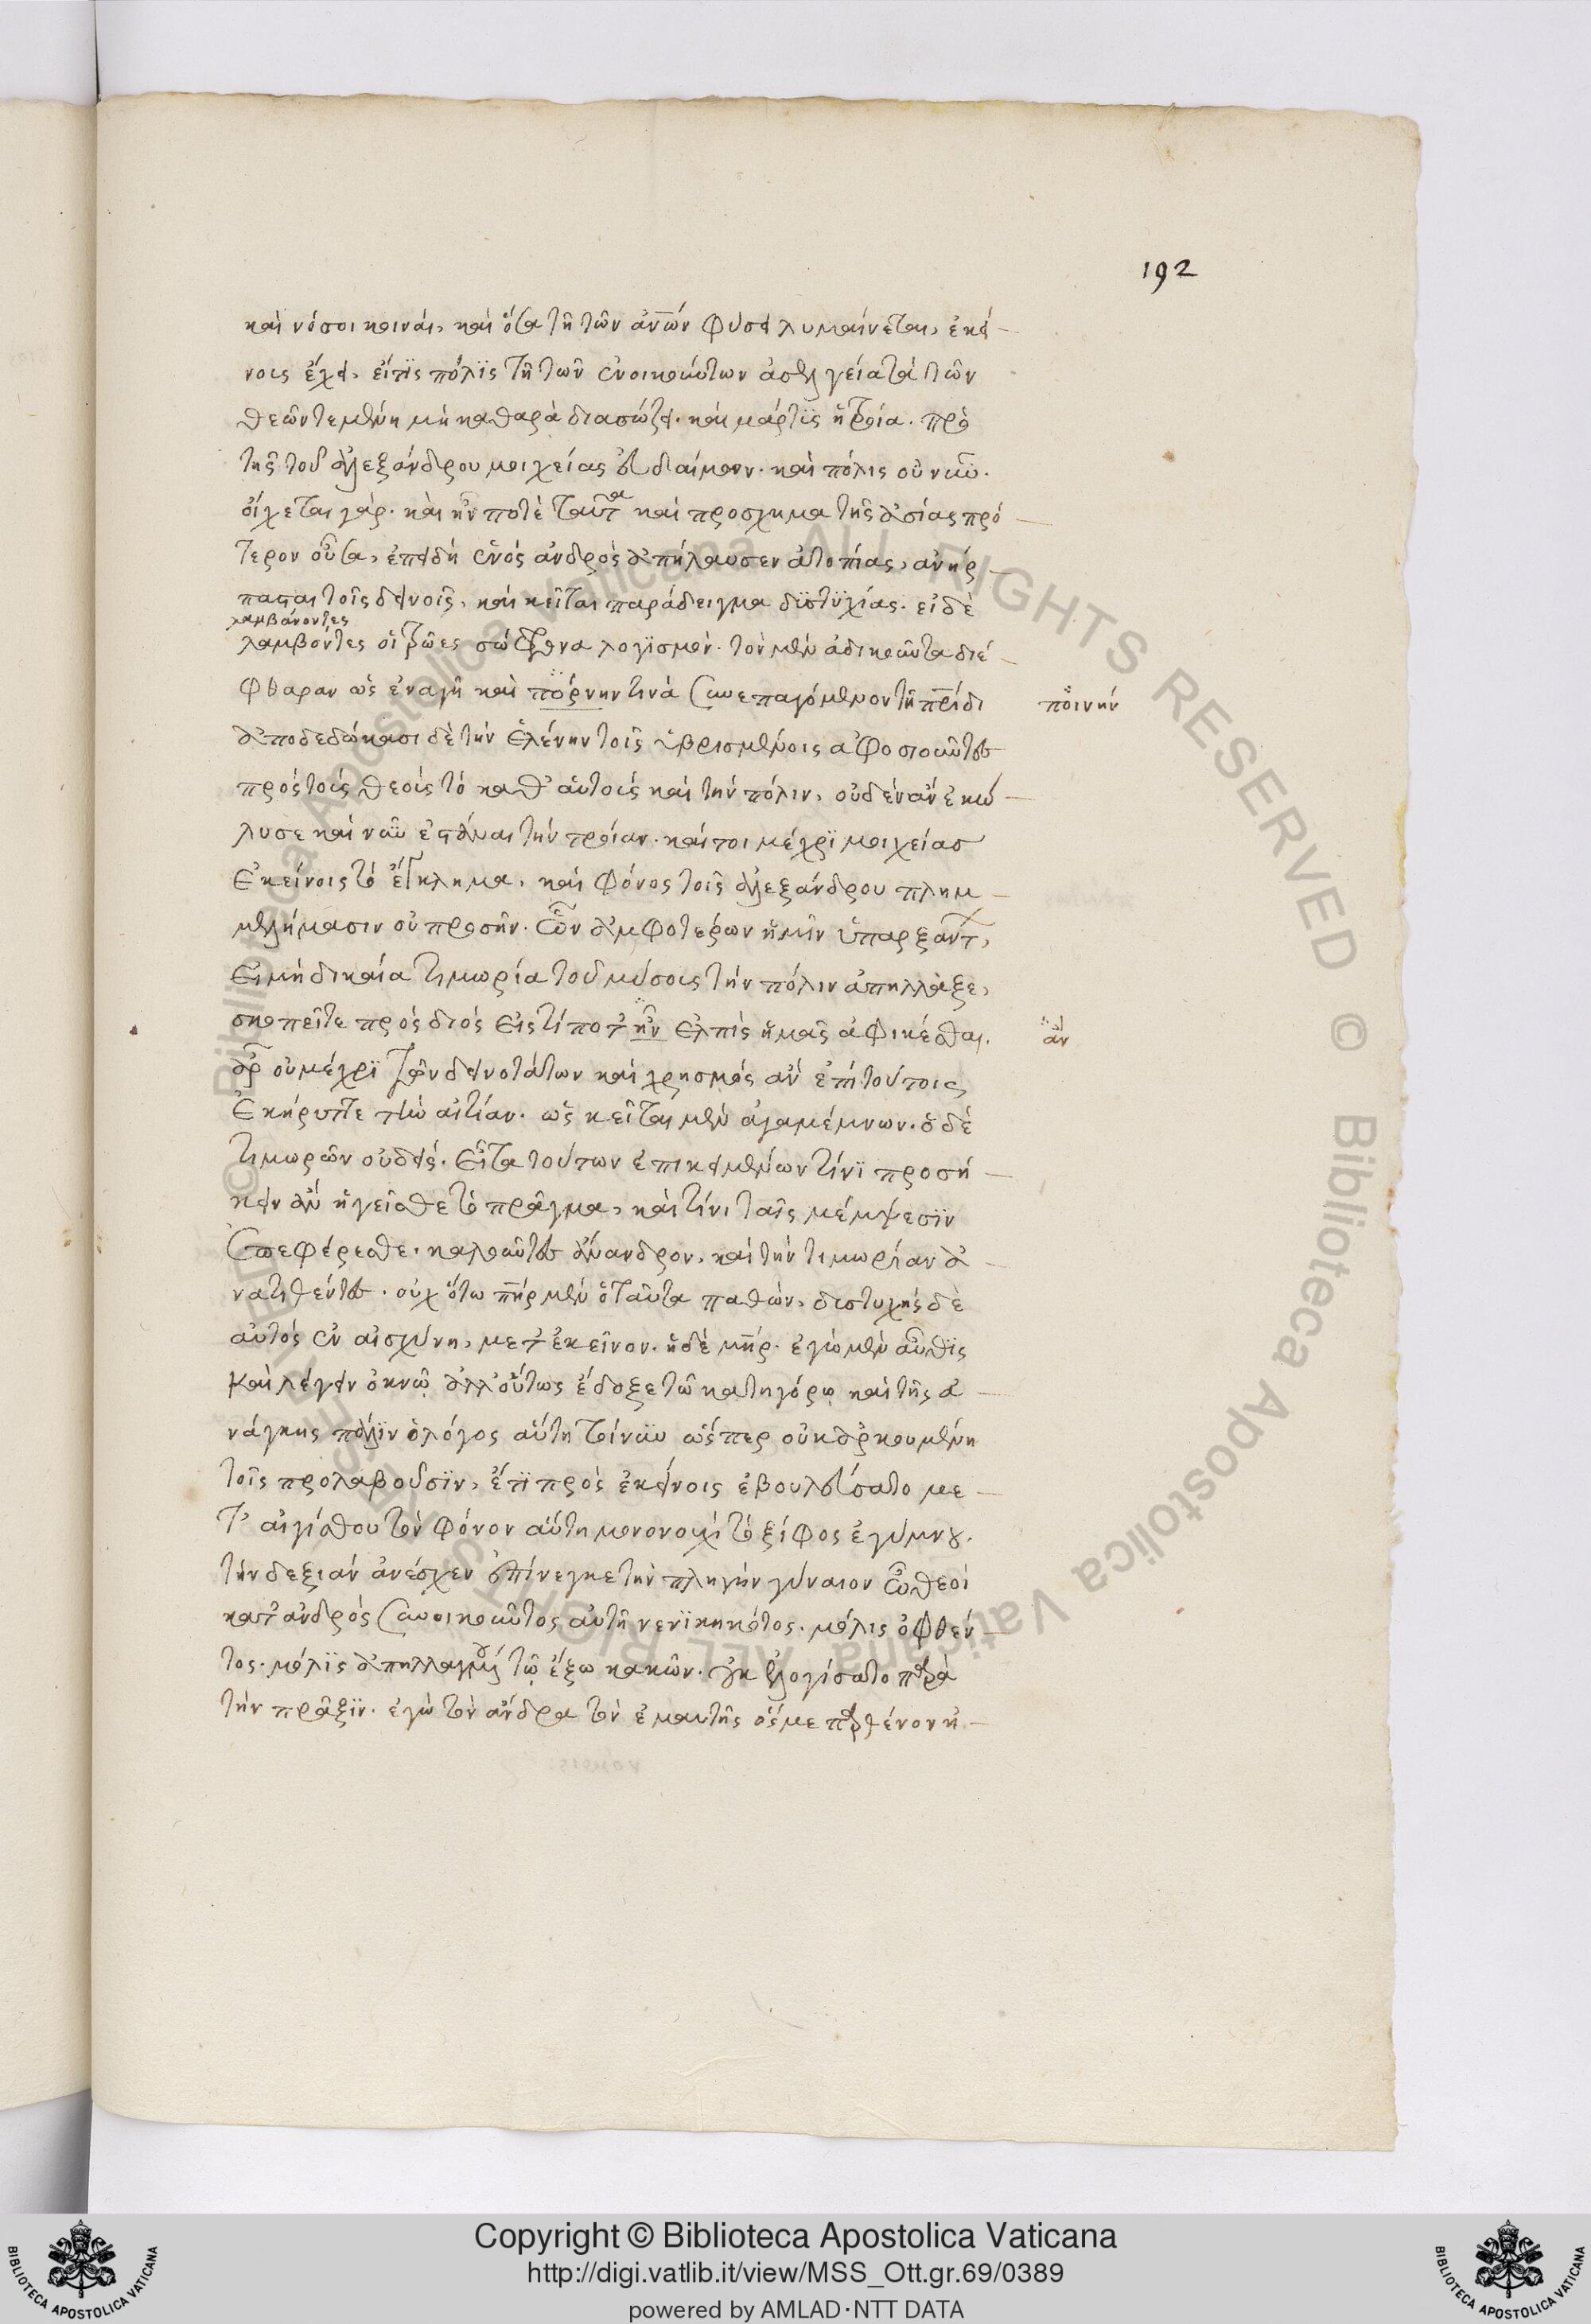 192
καὶ νόσοι κοιναὶ, καὶ ὅσα τῆ τῶν ἀνων φύσει λυμαίνεται, ἐκεί
νοις ἔχει. εἴ τις πόλις τῆ τῶν ἐνοικούντων ἀσελγεία τὰ τῶν
θεῶν τεμένη μὴ καθαρὰ διασώζει. καὶ μάρτις ἡ τροία. πρὸ
τῆς τοῦ ἀλεξάνδρου μοιχείας εὐδαίμων. καὶ πόλις οὐ νῦν.
οἴχεται γάρ. καὶ ἦν ποτὲ ταῦτα καὶ προσχημα τῆς ἀσίας πρό
τερον οὖσα, ἐπειδὴ ἑνὸς ἀνδρὸς ἀπήλαυσεν ἀτοπίας, ἀνήρ
πασται τοῖς δεινοῖς, καὶ κεῖται παράδειγμα δυστυχίας. εἰ δὲ
λαμβάνοντες
λαμβόντες οἱ τρῶες σώφρονα λογισμὸν. τὸν μὲν ἀδικοῦντα διέ
φθαραν ὡς ἐναγῆ καὶ πόρνην τινὰ συνεπαγόμενον τῆ πρίδι
ποινήν
ἀποδεδώκασι δὲ τὴν ἑλένην τοῖς ὑβρισμένοις ἀφοσιοῦντες
πρὸς τοὺς θεοὺς τὸ καθ' αὑτοὺς καὶ τὴν πόλιν, οὐδὲν ἂν ἐκώ
λυσε καὶ νῦν ἑστάναι τὴν τροίαν. καίτοι μέχρι μοιχείας
ἐκείνοις τὸ ἔγκλημα, καὶ φόνος τοῖς ἀλεξάνδρου πλημ
μελήμασιν οὐ προσῆν. ὧν ἀμφοτέρων ἡμῖν ὑπαρξάντ,
εἰ μὴ δικαία τιμωρία τοῦ μύσους τὴν πόλιν ἀπήλλαξε,
σκοπεῖτε πρὸς διὸς εἰς τί ποτ' ἦν ἐλπὶς ἡμᾶς ἀφικέσθαι.
ἂν
ἆρ' οὐ μέχρι τῶν δεινοτάτων καὶ χρησμὸς ἂν ἐπὶ τούτοις
ἐκήρυττε τὴν αἰτίαν. ὡς κεῖται μὲν ἀγαμέμνων. ὁ δὲ
τιμωρῶν οὐδείς. εἶτα τούτων ἐπικειμένων τίνι προσή
κειν ἂν ἡγεῖσθε τὸ πρᾶγμα, καὶ τίνι ταῖς μέμψεσιν
ἐπεφέρεσθε. καλοῦντες ἄνανδρον, καὶ τὴν τιμωρίαν ἀ
νατιθέντες. οὐχ ὅτω πηρ μὲν ὁ ταῦτα παθὼν, δυστυχὴς δὲ
αὐτὸς ἐν αἰσχύνη, μετ' ἐκεῖνον. ἡ δὲ μηρ. ἐγὼ μὲν αὖθις
καὶ λέγειν ὀκνῶ. ἀλλ' οὕτως ἔδοξε τῶ κατηγόρω καὶ τῆς ἀ
νάγκης πάλιν ὁ λόγος αὕτη τοίνυν ὥσπερ οὐκ ἀρκουμένη
τοῖς προλαβοῦσιν, ἔτι πρὸς ἐκείνοις ἐβουλεύσατο με
τ' αἰγίσθου τὸν φόνον αὕτη μονονουχὶ τὸ ξίφος ἐγύμνου.
τὴν δεξιὰν ἀνέσχεν ἐπήνεγκε τὴν πληγὴν γύναιον ὦ θεοὶ
κατ' ἀνδρὸς συνοικοῦντος αὐτῆ νενικηκότος. μόλις ὀφθέν
τος. μόλις ἀπηλλαγμένου τῶ ἔξω κακῶν. οὐκ ἐλογίσατο παρὰ
τὴν πρᾶξιν. ἐγὼ τὸν ἄνδρα τὸν ἐμαυτῆς ὅς με παρθένον ἠ